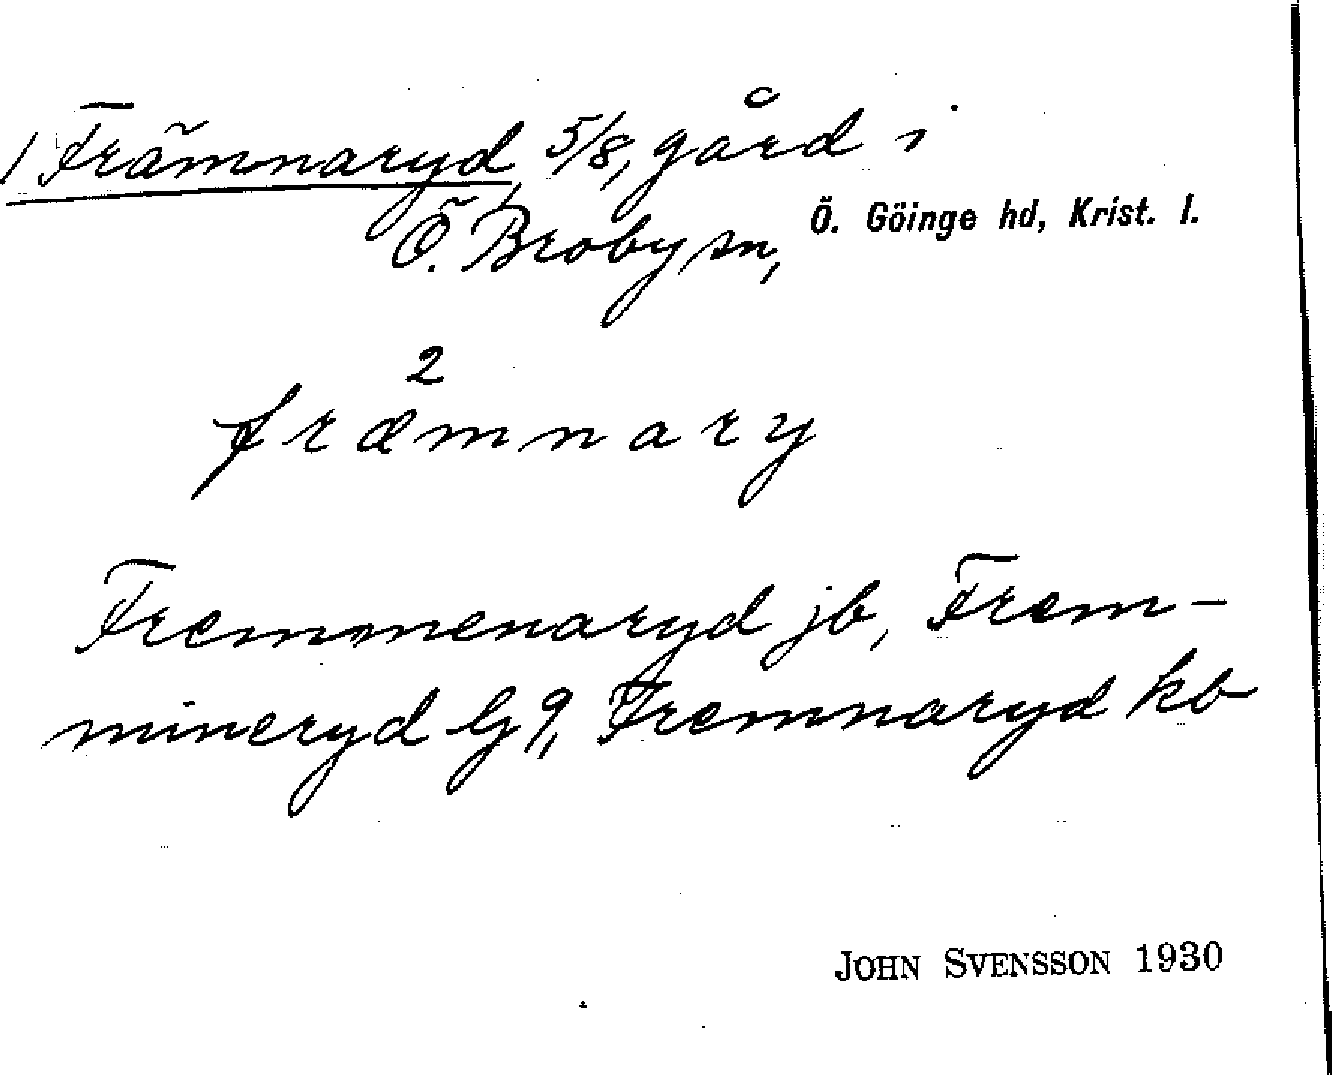 1 Främnaryd 5/8, gård i
Ö. Broby sn, Ö. Göinge hd, Krist. l.
2
fræmnary
Fremmenaryd jb, Frem-
mineryd lj 9, Fremnaryd kb
JOHN SVENSSON 1930